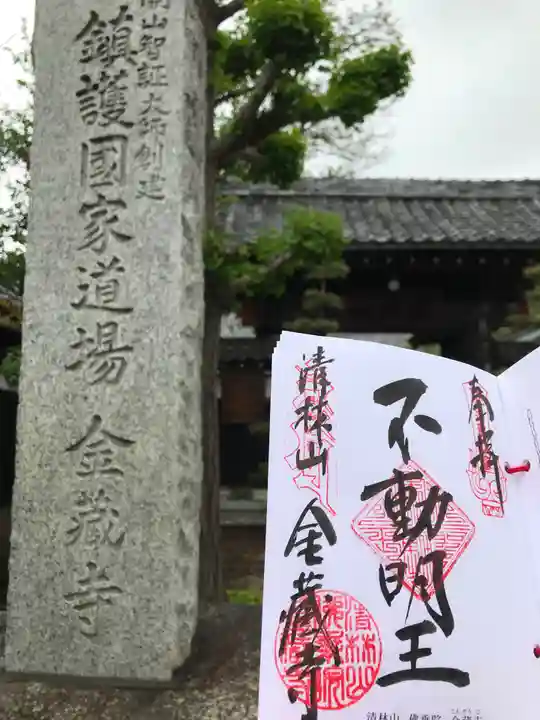 開山智証大師創建
鎮護國家道場 金藏寺
奉拝
不動明王
清林山
金藏寺
清林山 佛乗院